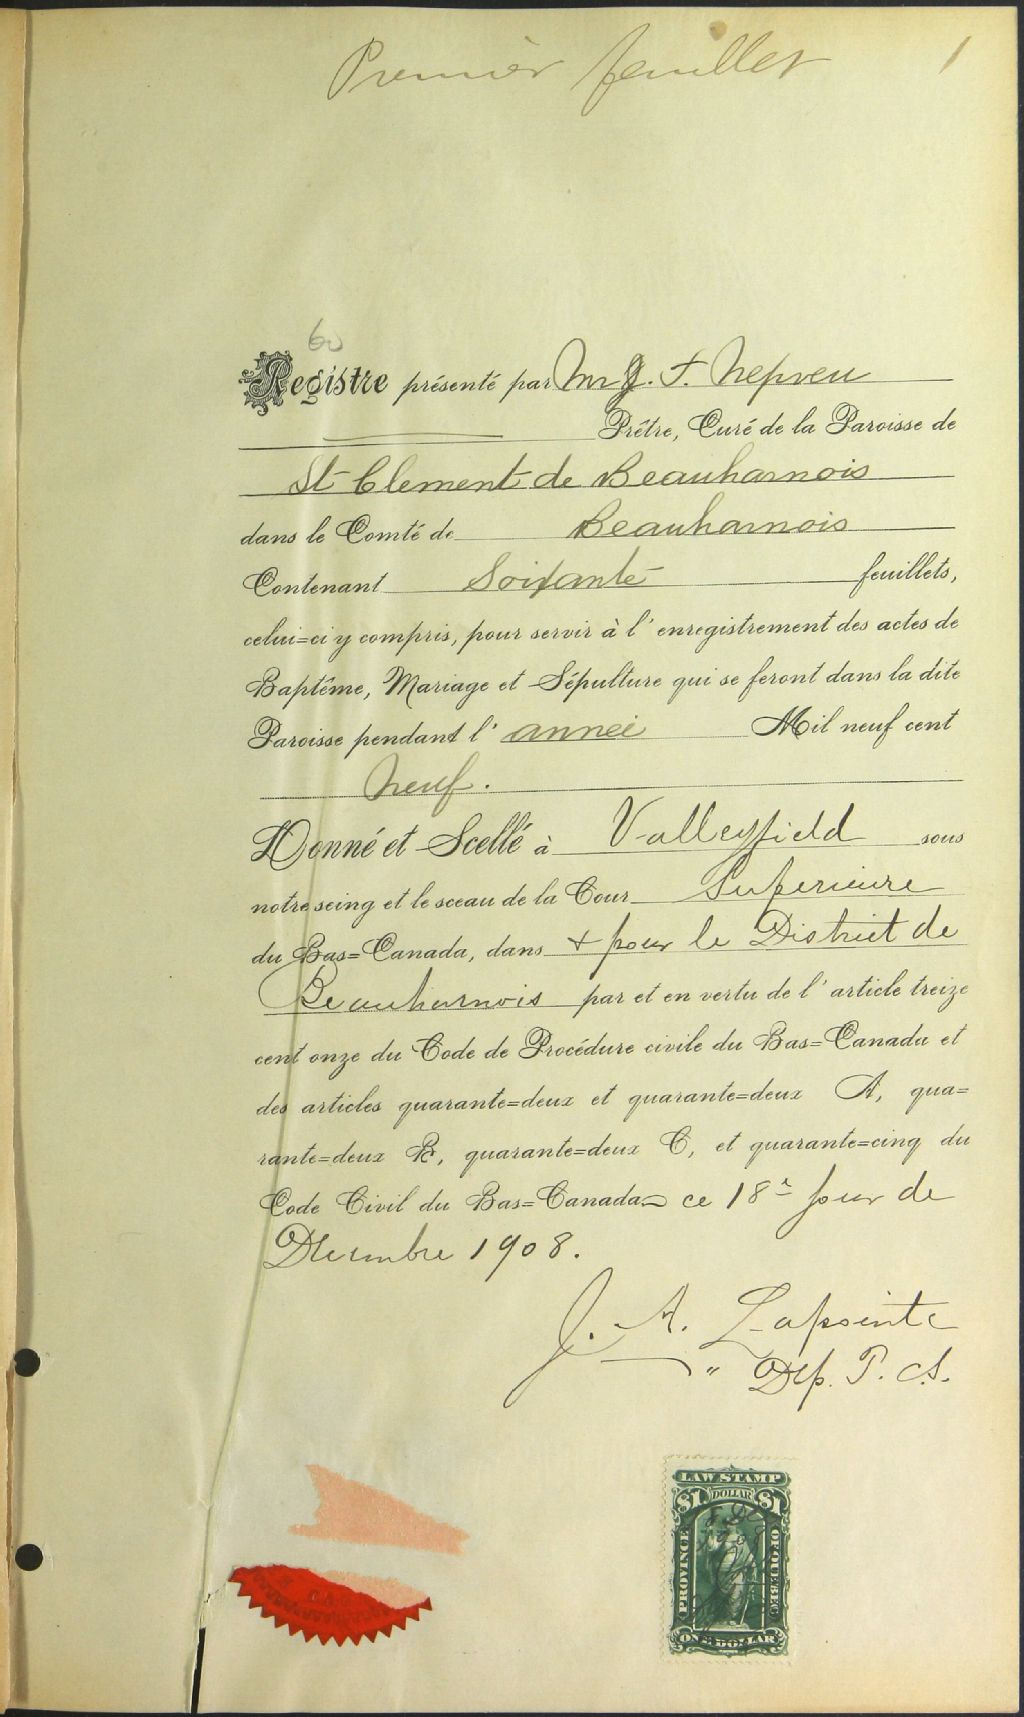 Premier feuillet 1
60
Registre présenté par Mr J. F. Nepveu
Prêtre, Curé de la Paroisse de
St Clement de Beauharnois
dans le Comté de Beauharnois
Contenant Soixante feuillets,
celui=ci y compris, pour servir à l'enregistrement des actes de
Baptême, Mariage et Sépulture qui se feront dans la dite
Paroisse pendant l'année Mil neuf cent
neuf.
Donné et Scellé à Valleyfield sous
notre seing et le sceau de la Cour Superieure
du Bas=Canada, dans & pour le District de
Beauharnois par et en vertu de l'article treize
cent onze du Code de Procédure civile du Bas=Canada et
des articles quarante=deux et quarante=deux A, qua=
rante=deux B, quarante=deux C, et quarante=cinq du
Code Civil du Bas=Canada ce 18e jour de
Décembre 1908.
J. A. Lapointe
" Dep. P. C. S.
LAW STAMP
$1 DOLLAR $1
PROVINCE OF QUEBEC
ONE DOLLAR